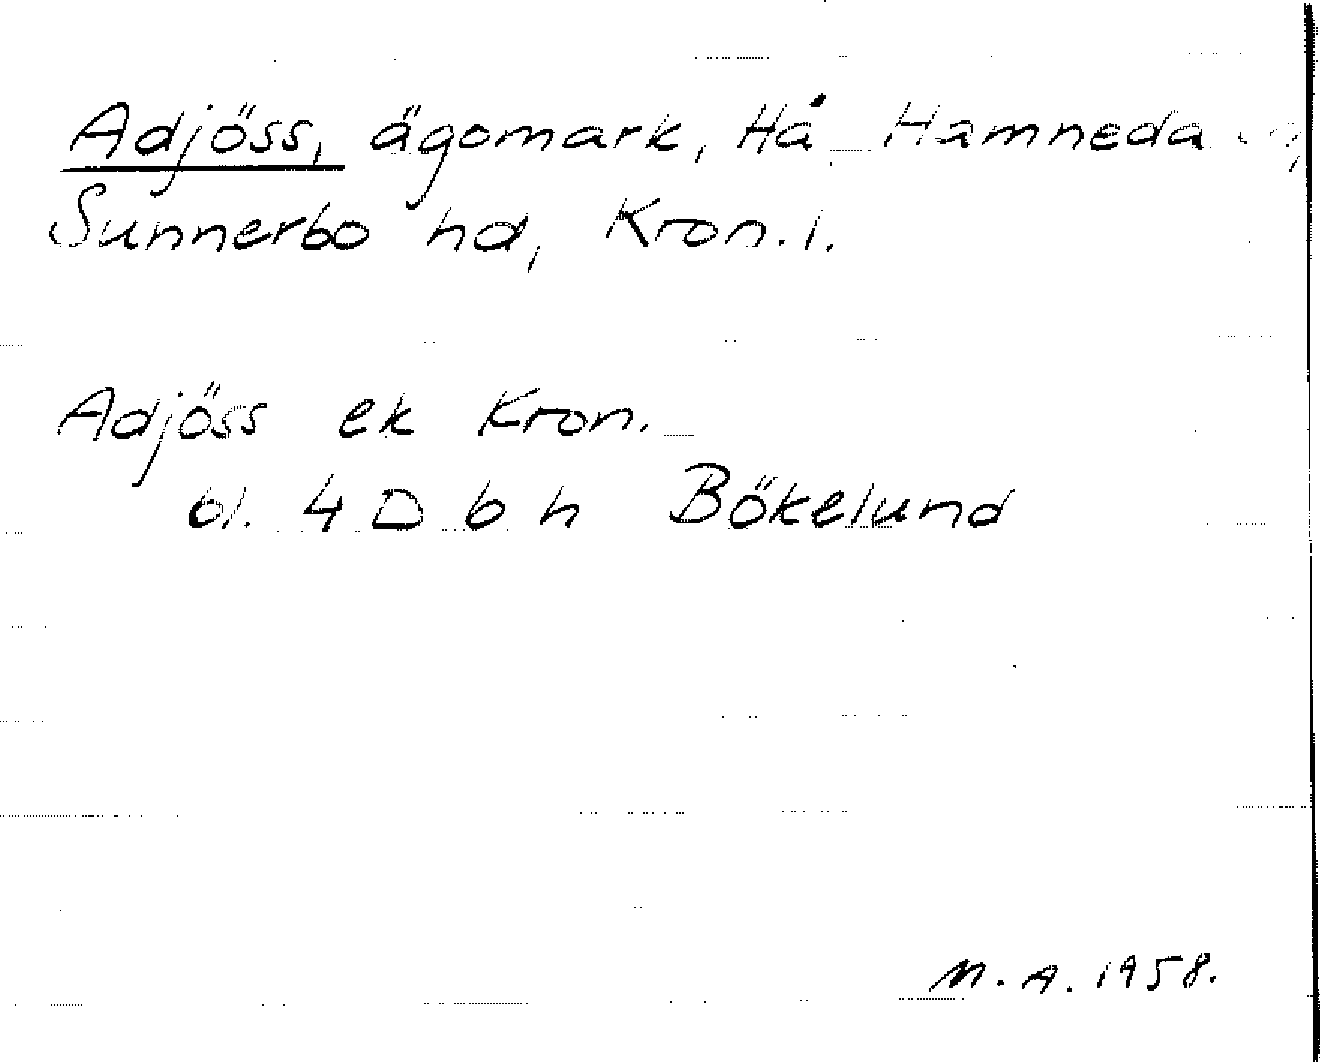 Adjöss, ägomark, Hå Hamneda
Sunnerbo hd, Kron.l.
Adjöss ek Kron.
bl. 4 D b h Bökelund
M.A. 1958.